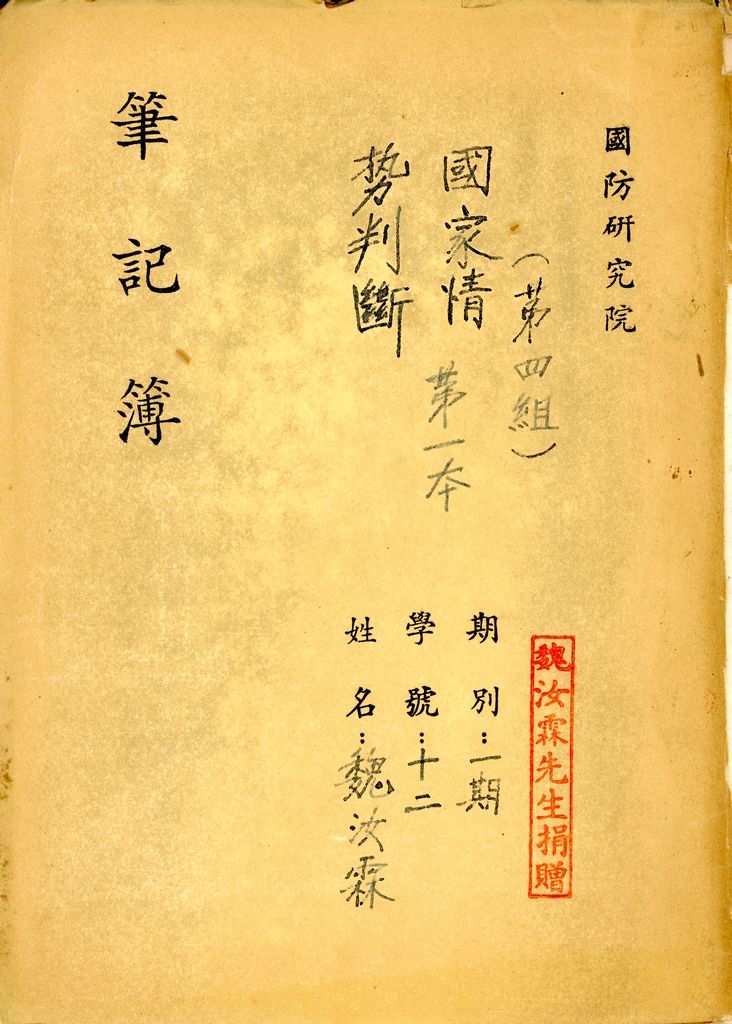 國防研究院
（第四組）
國家情
势判斷
第一本
筆記簿
期別：一期
學號：十二
姓名：魏汝霖
魏汝霖先生捐贈